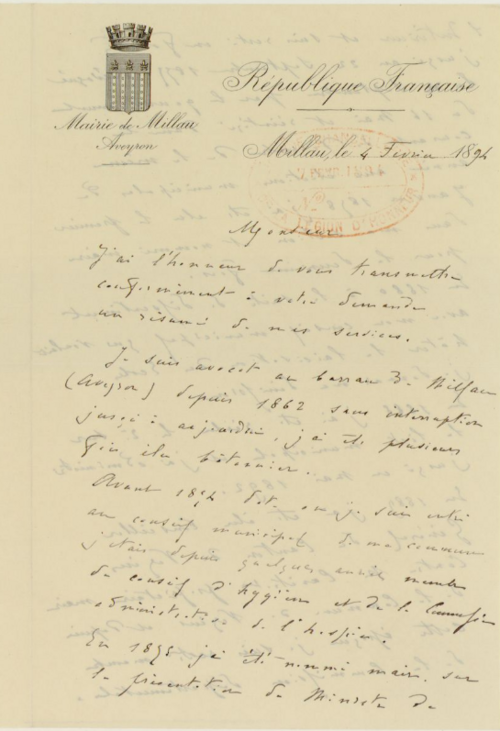 République Française
Mairie de Millau
Aveyron
Millau, le 4 Février 1894
LEGION D'HONNEUR
Monsieur
J'ai l'honneur de vous transmettre
conformément à votre demande
un résumé de mes services.
Je suis avocat au barreau de Millau
(Aveyron) depuis 1862 sans interruption
jusqu'à aujourdhui, j'ai été plusieurs
fois élu bâtonnier.
Avant date ou je suis entré
au conseil municipal de ma commune
j'étais depuis quelques années membre
du conseil d'hygiène et de la Commission
administrative de l'hospice.
En j'ai été nommé maire, sur
la présentation du Ministre de